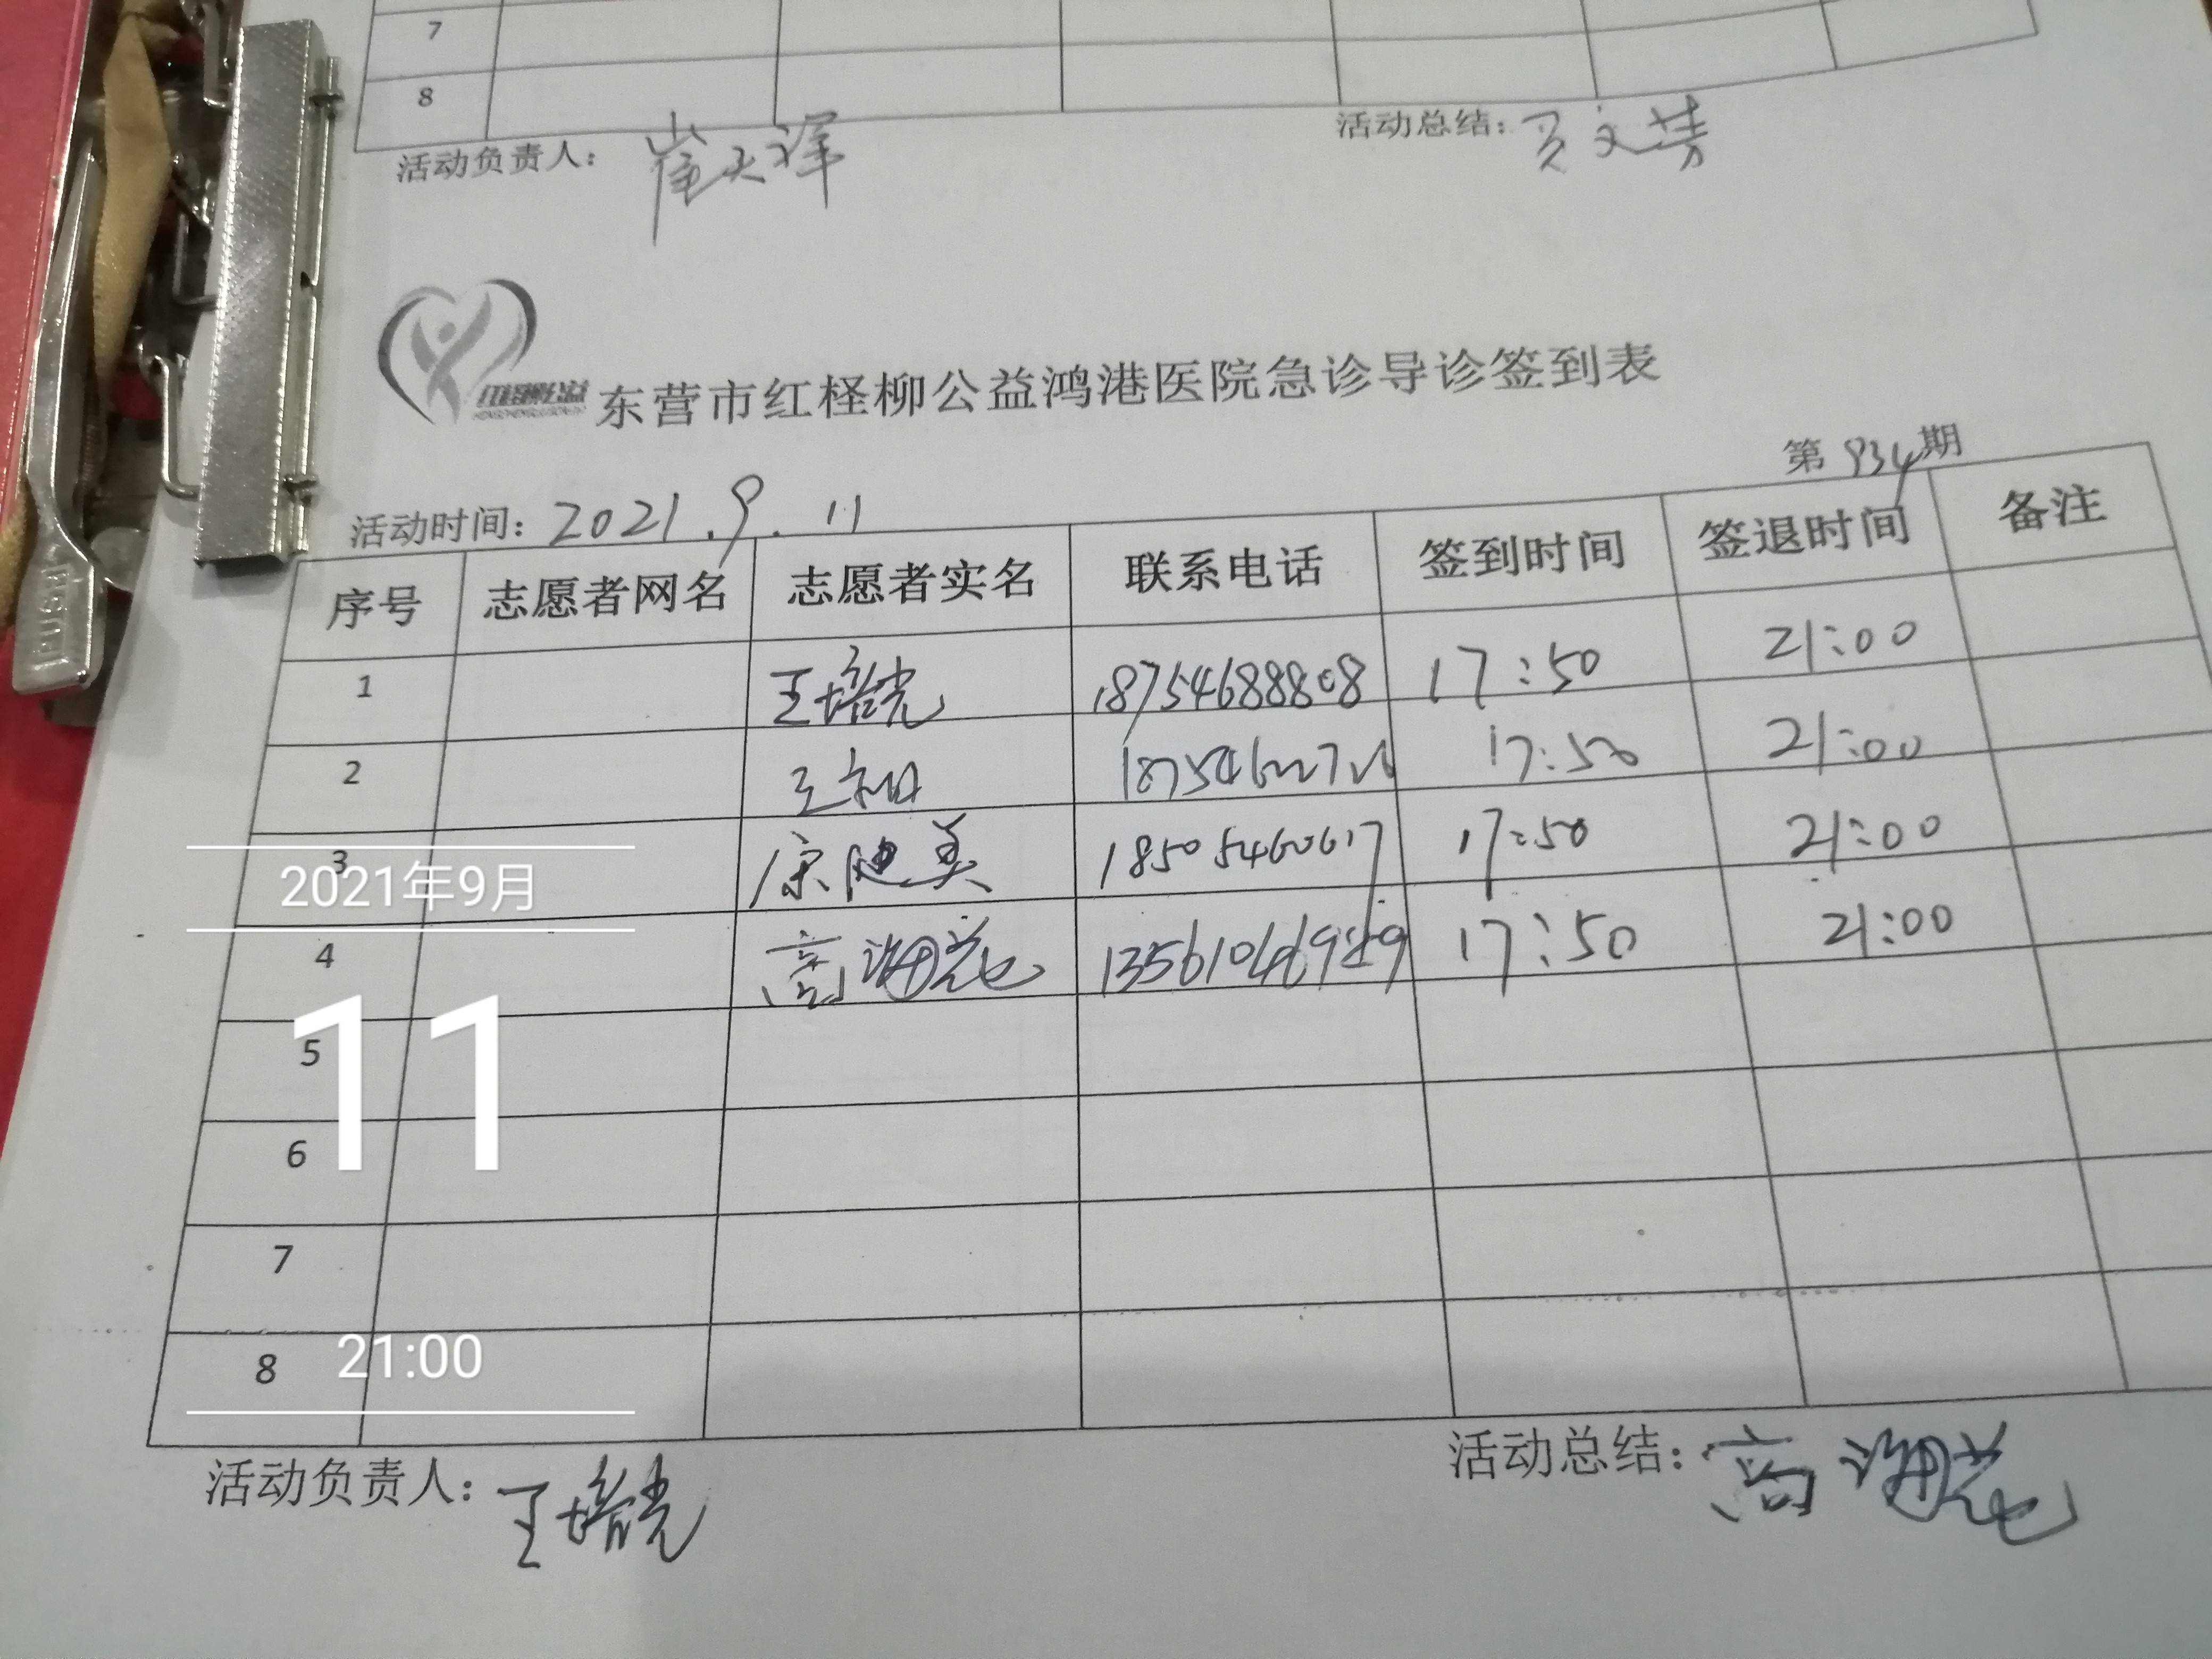 7
8
活动负责人： 崔天泽 活动总结：
东营市红柽柳公益鸿港医院急诊导诊签到表
第 934 期
活动时间：2021.9.11
序号 志愿者网名 志愿者实名 联系电话 签到时间 签退时间 备注
1 王培光 18754688808 17:50 21:00
2 17:50 21:00
3 康健美 18505460617 17:50 21:00
4 17:50 21:00
5
6
7
8
活动负责人：王培光 活动总结：
2021年9月
11
21:00
PUSH